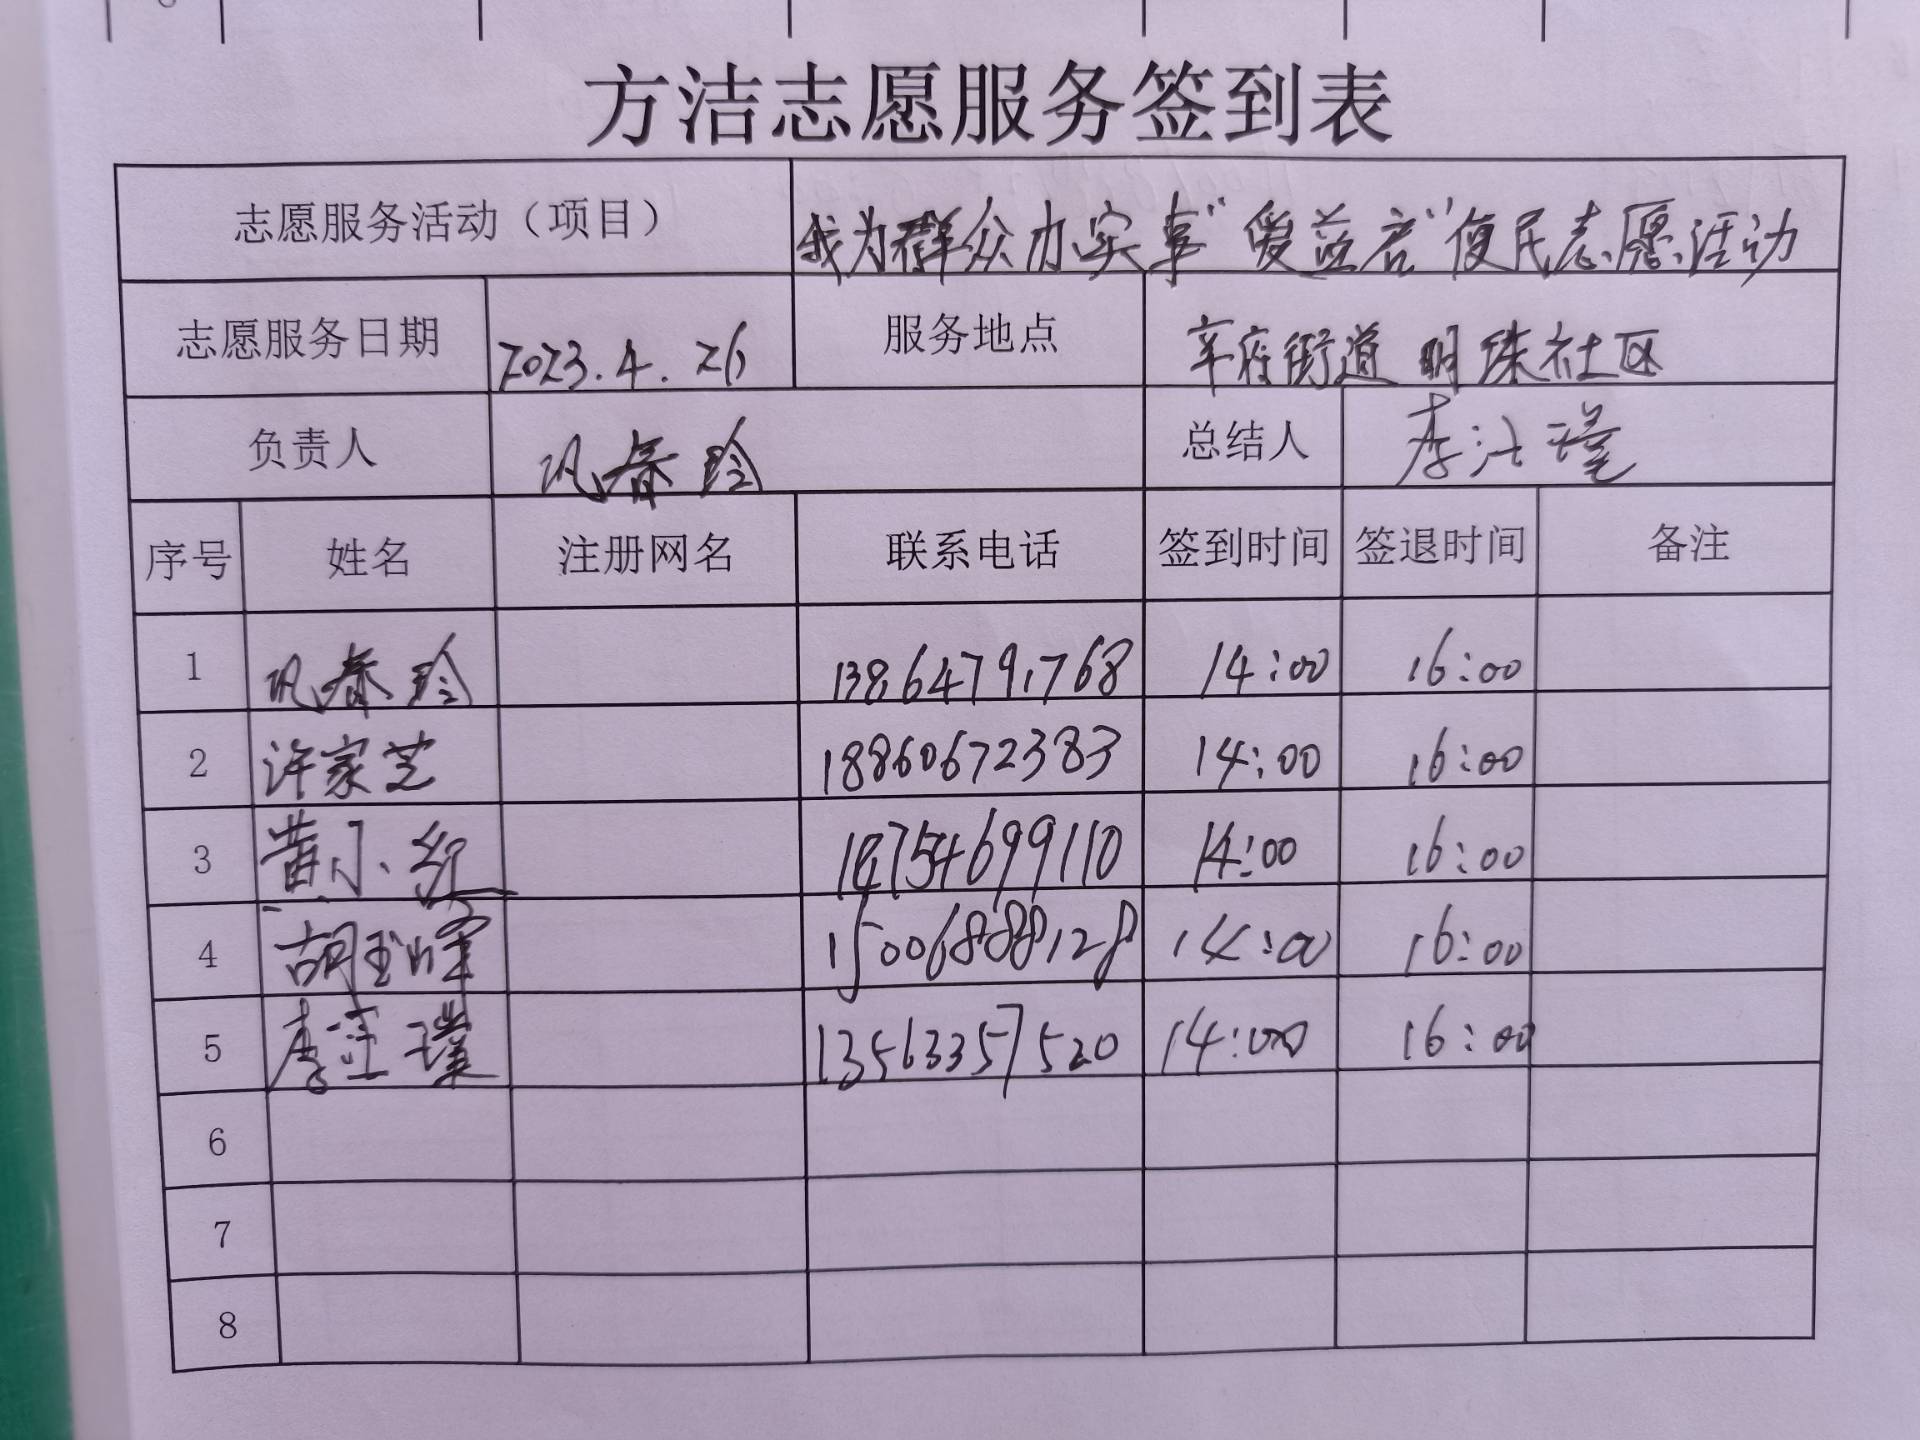 方洁志愿服务签到表
志愿服务活动（项目） 我为群众办实事"爱益君"便民志愿活动
志愿服务日期 2023.4.26 服务地点 辛店街道 明珠社区
负责人 巩春玲 总结人 李
序号 姓名 注册网名 联系电话 签到时间 签退时间 备注
1 巩春玲 13864791768 14:00 16:00
2 许家芝 18860672383 14:00 16:00
3 黄小红 14:00 16:00
4 胡玉峰 15006888128 14:00 16:00
5 李 13563357520 14:00 16:00
6
7
8